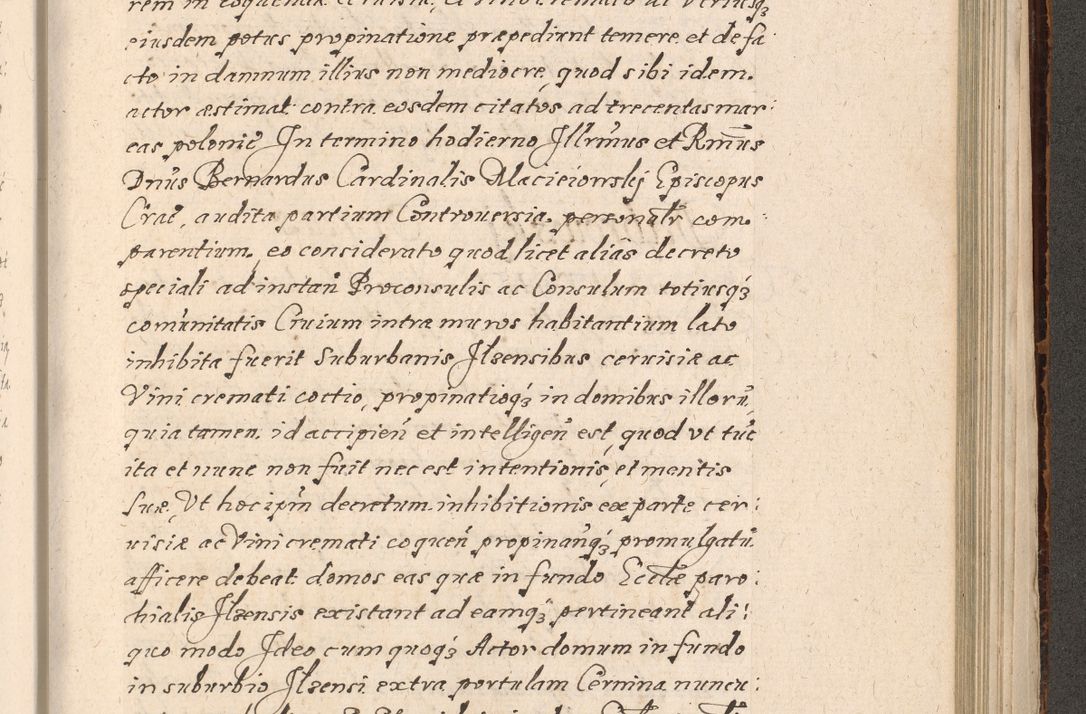 eiusdem potus propinatione præpediunt temere et de fa
cto in damnum illius non mediocre, quod sibi idem.
actor æstimat contra eosdem citatos ad trecentas mar:
cas polonic̃ In termino hodierno Illrm̃us et Rm̃us
Dnũs Bernardus Cardinalis Macieiowskj Episcopus
Crac̃, audita partium Controuersia. personalr̃ com:
parentium, eo considerato quod licet aliãs decreto
speciali ad instañ Proconsulis ac Consulum totiusq́ȝ
com̃unitatis Ciuium intra muros habitantium lato
inhibita fuerit Suburbanis Ilzensibus ceruisiæ ac
Vini cremati coctio, propinatioq́ȝ in domibus illorũ,
quia tamen id accipieñ et intelligeñ est, quod vt tũc
ita et nunc non fuit nec est intentionis, et mentis
Suæ, Vt hoc ipm̃ decretum inhibitionis ex parte cer:
uisiæ ac Vini cremati coqueñ propinañq́ȝ promulgatũ
afficere debeat domos eas quæ in fundo Eccłæ paro:
chialis Ilzensis existant ad eamq́ȝ pertineant ali:
quo modo Ideo cum quoq́ȝ Actor domum in fundo
in suburbio Ilzensi extra portulam Cernina nuncu: